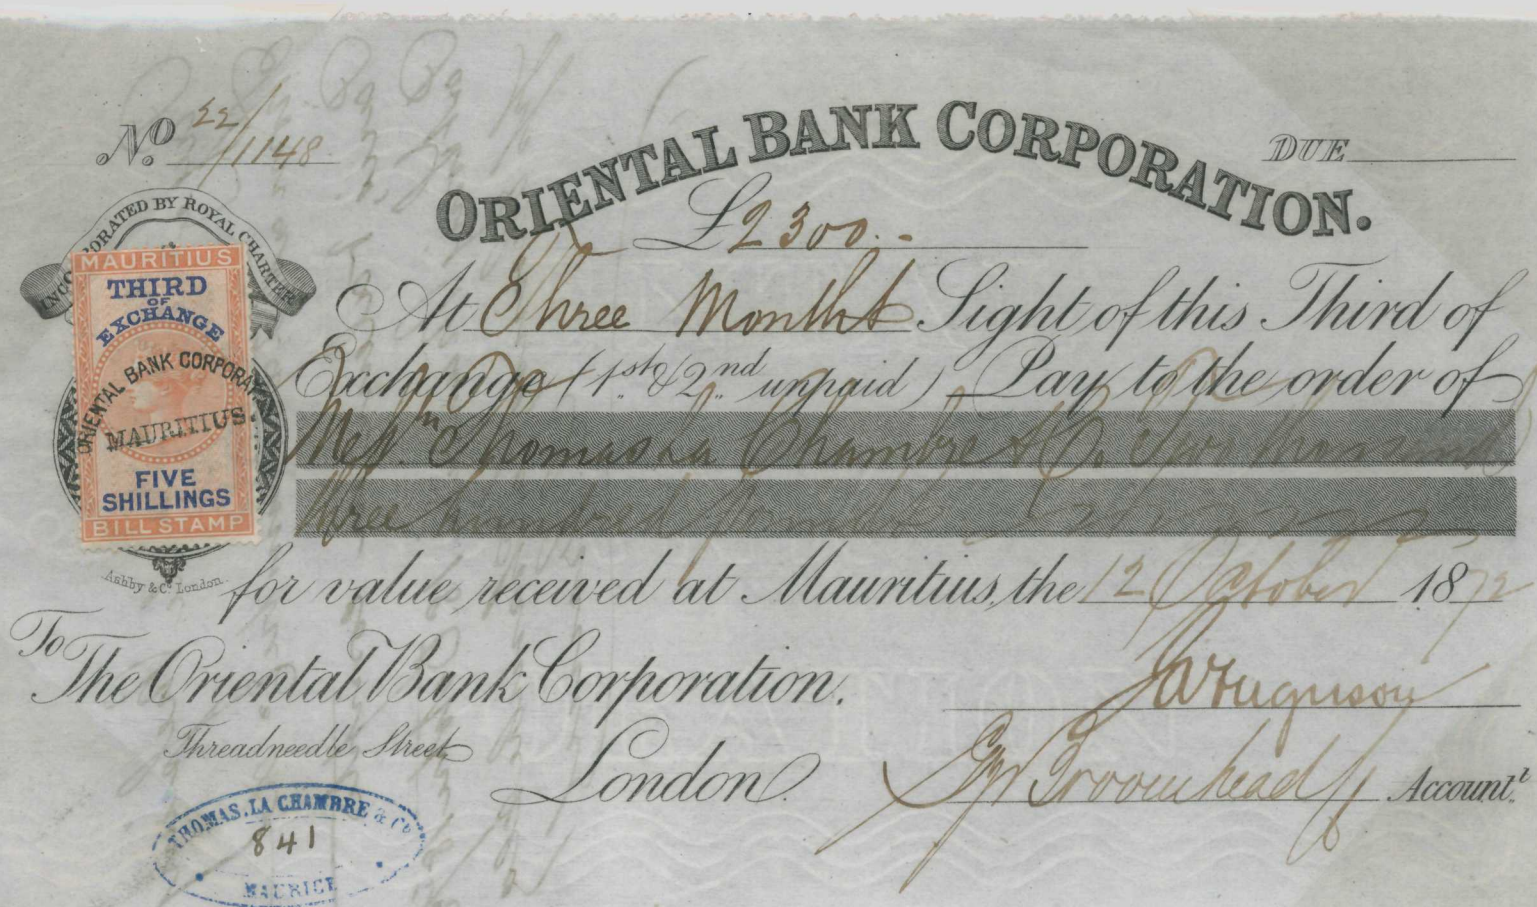 No. 22/1148
ORIENTAL BANK CORPORATION.
DUE
£2300.-
INCORPORATED BY ROYAL CHARTER
MAURITIUS
THIRD
OF
EXCHANGE
ORIENTAL BANK CORPORA
MAURITIUS.
FIVE
SHILLINGS
BILL STAMP
Ashby & Co. London.
At Three Months Sight of this Third of
Exchange (1st & 2nd unpaid) Pay to the order of
Messrs. Thomas La Chambre & Co. Two thousand
three hundred pounds
for value received at Mauritius, the 12 October 1872
To
The Oriental Bank Corporation.
Threadneedle Street
London.
Ferguson
Broomhead Accountt.
THOMAS, LA CHAMBRE & Co
841
MAURICE